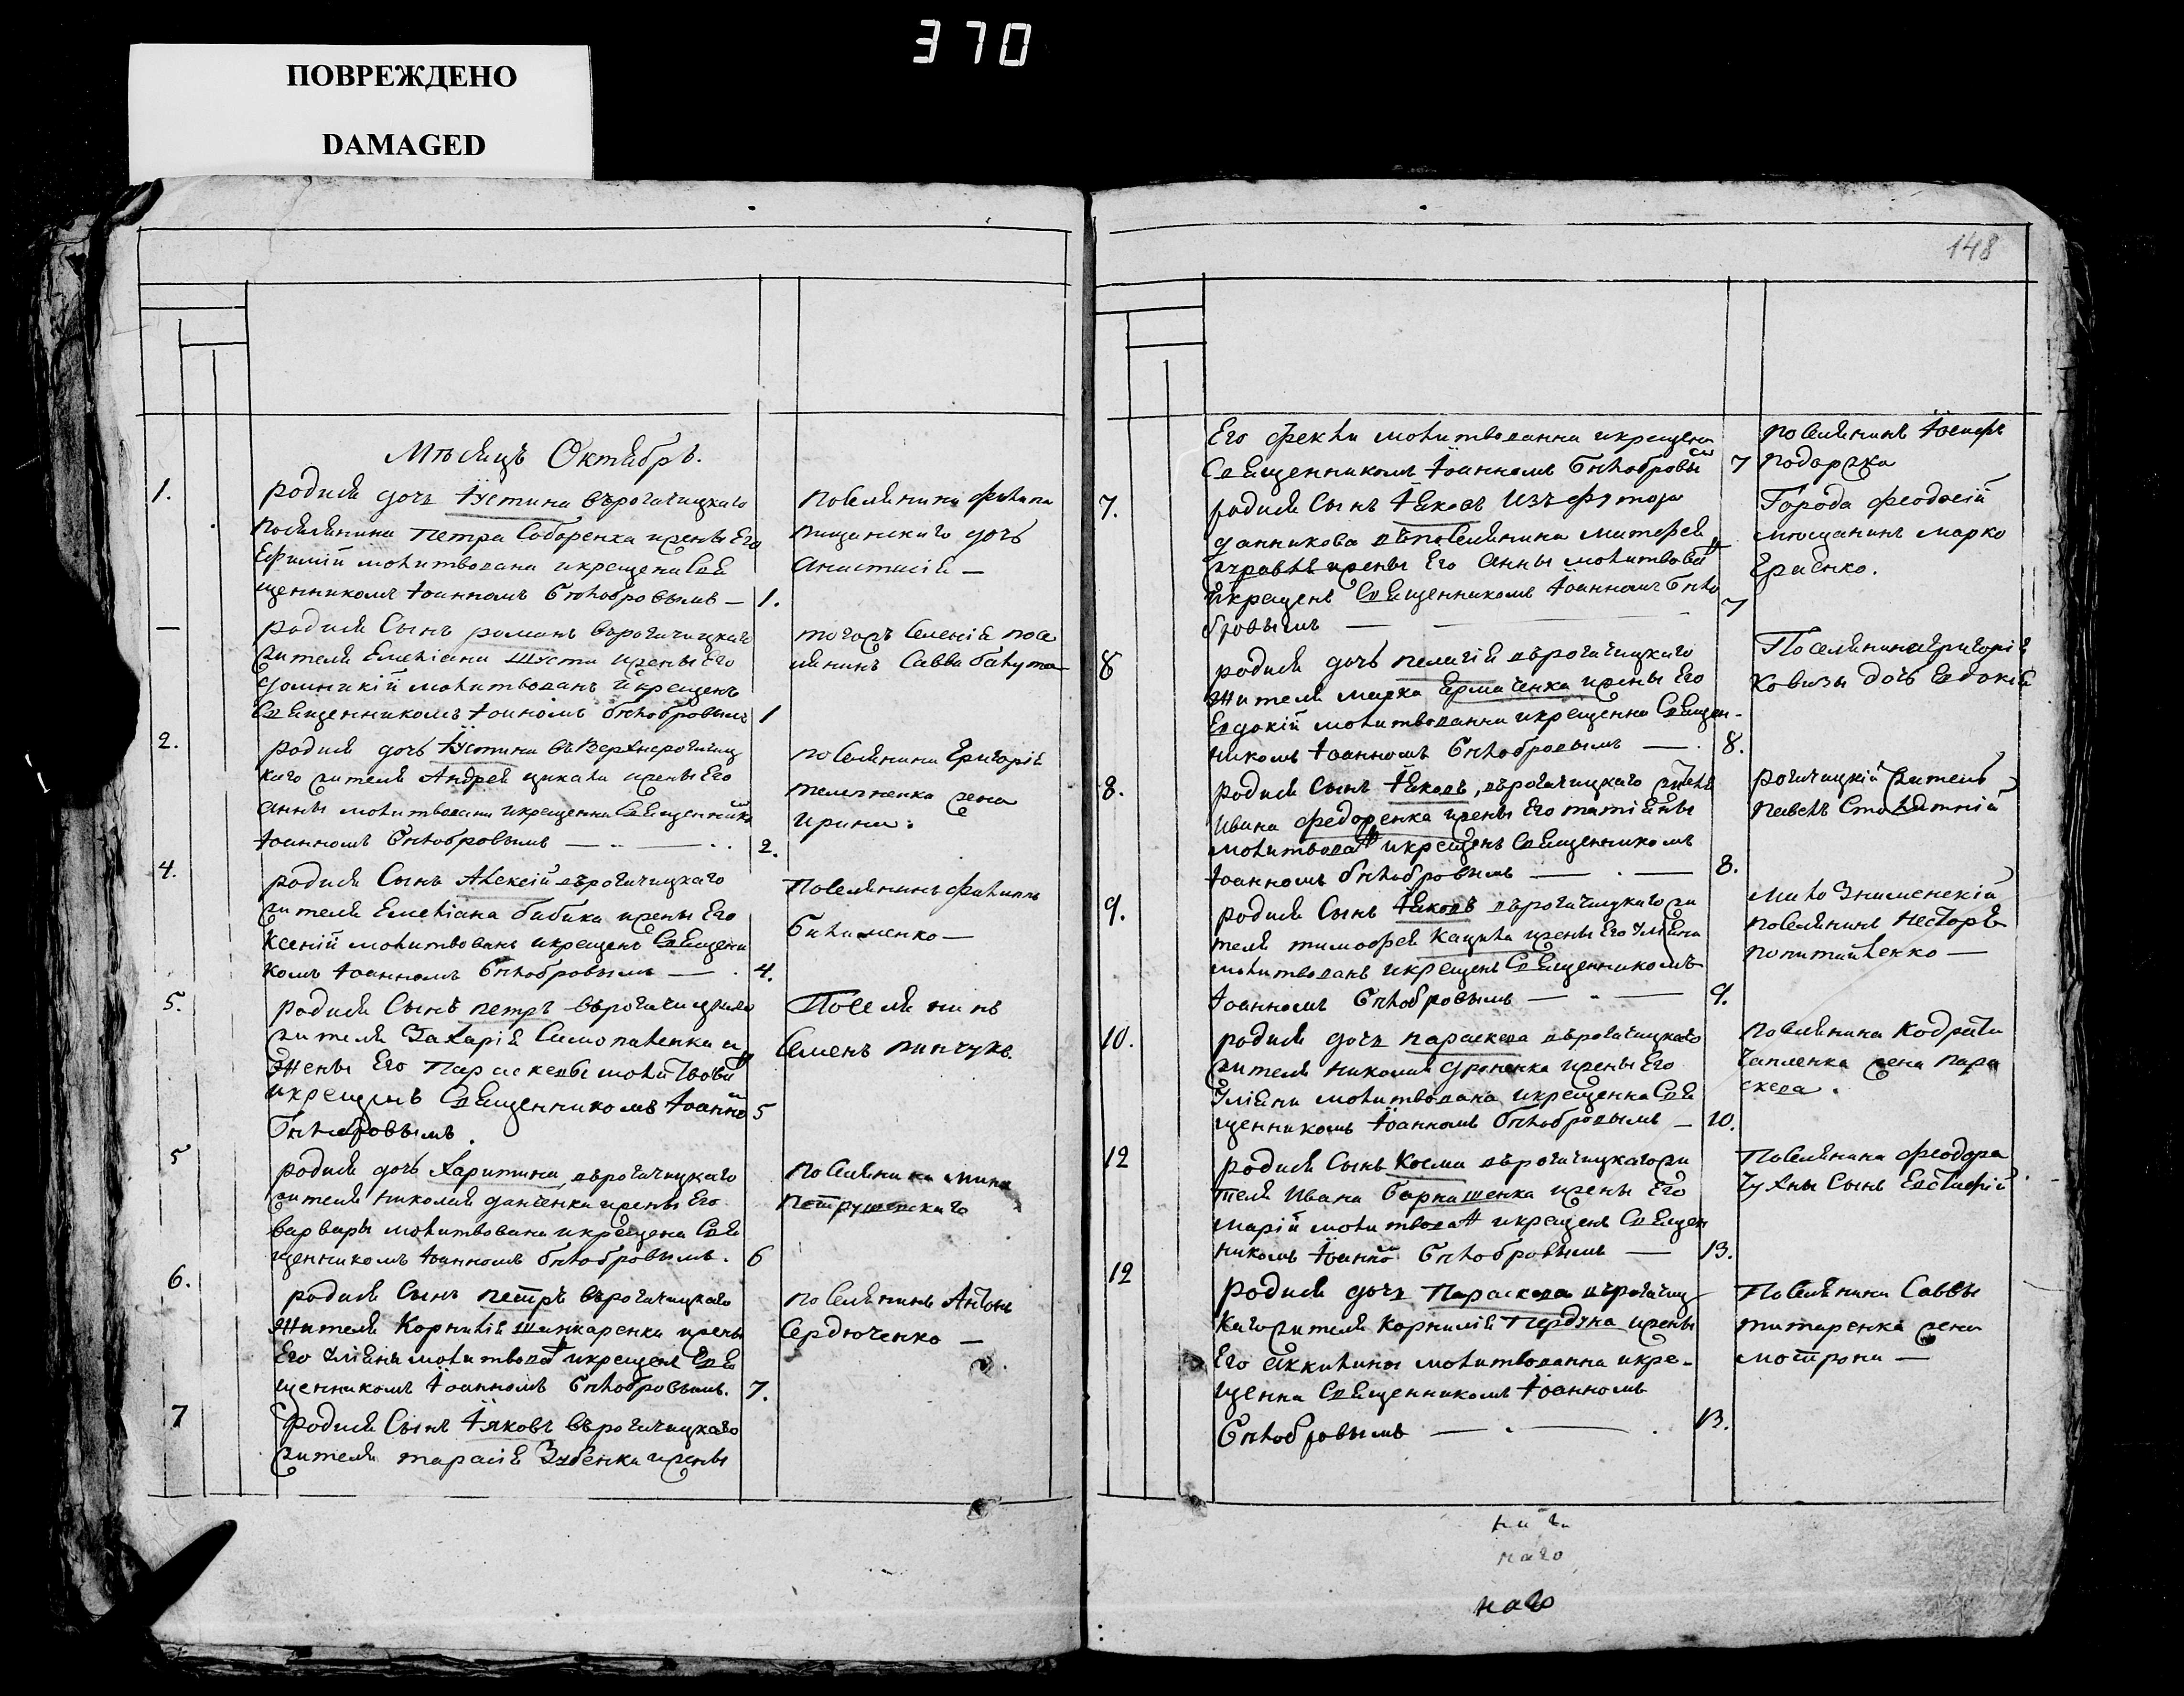 370
ПОВРЕЖДЕНО
DAMAGED
148
Мѣсяцъ Октябрь.
1.
родися дочь Іустина върогачицкаго
поселянина Петра Соборенка ижены Его
Ефимій молитвована икрещена Свя
щенникомъ Іоанномъ Бѣлобровымъ — 1.
поселянина Филипа
пищанскаго дочь
Анастасія —
—
родися Сынъ романъ върогачицкаго
жителя Емеліана Шуста ижены Его
домникій молитвованъ икрещенъ
Священникомъ Іоанномъ бѣлобровымъ 1
тогожъ Селенія посе
лянинъ Савва бакута
2.
родися дочь Іустина въ верхнерогачиц
каго жителя Андрея цикала ижены Его
Анны молитвована икрещенна Священником
Іоанномъ Бѣлобровымъ — 2.
поселянина Григорія
жена
ирина.
4.
родися Сынъ Алексій върогачицкаго
жителя Емеліана бабика ижены Его
Ксеній молитвованъ икрещенъ Священи
комъ Іоанномъ Бѣлобровымъ — 4.
Поселянинъ филипъ
5.
родися Сынъ петръ върогачицкаго
жителя Захарія Самопаленка и
жены Его Параскевы молитвован
икрещенъ Священникомъ Іоанном 5
Бѣлобровымъ.
Поселянинъ
Семенъ пинчукъ.
5
родися дочь Харитина, върогачицкаго
жителя николая даненка ижены Его
варвары молитвована икрещена Свя
щенникомъ Іоанномъ бѣлобровымъ. 6
поселянина мина
петрушевскаго
6.
родися Сынъ петръ върогачицкаго
Жителя Корнилія шинкаренка ижены
Его Уліяны молитвован икрещенъ Свя
щенникомъ Іоанномъ Бѣлобровымъ. 7.
поселянинъ Антонъ
Сердюченко —
7
родися Сынъ Іяковъ върогачицкаго
жителя тарасія Зубенка ижены
Его феклы молитвованна икрещена
Священникомъ Іоанномъ Бѣлобровым 7
поселянинъ Іосифъ
подаржа
7.
родися Сынъ Іяковъ Изъ футора
данникова поселянина матфея
журавля ижены Его Анны молитвован
икрещенъ Священникомъ Іоанномъ Бѣло 7
бровымъ —
Города феодосій
мѣщанинъ марко
Ераенко.
8
родися дочь пелагія върогачицкаго
жителя марка Ермаченка ижены Его
Евдокій молитвованна икрещенна Священ-
никомъ Іоанномъ Бѣлобровымъ — 8.
Поселянина григорія
Ковизы дочь Евдокія
8.
родися Сынъ Іяковъ, върогачицкаго жителя
ивана федоренка ижены Его татіяны
молитвован икрещенъ Священникомъ
Іоанномъ бѣлобровымъ — 8.
рогачицкій житель
павелъ
9.
родися Сынъ Іяковъ върогачицкаго жи
теля тимофея Кацила ижены Его Уліяны
молитвованъ икрещенъ Священникомъ
Іоанномъ Бѣлобровымъ — 9.
мало Знаменскій
поселянинъ несторъ
10.
родися дочь параскева върогачицкаго
жителя николая дроненка ижены Его
Уліяны молитвована икрещенна Свя
щенникомъ Іоанномъ бѣлобровымъ — 10.
поселянина Кодрата
чапленка жена пара
скева.
12
родися Сынъ Косма върогачицкаго жи
теля ивана барнашенка ижены Его
маріи молитвован икрещенъ Священ
никомъ Іоанном Бѣлобровымъ — 13.
Поселянина феодора
Чухны Сынъ Евстафій
12
родися дочь Параскева върогачиц
каго жителя корнилія Пердуна ижены
Его Аккилины молитвованна икре-
щенна Священникомъ Іоанномъ
Бѣлобровымъ — 13.
Поселянина Саввы
титаренка жена
мотрона —
наго
наго